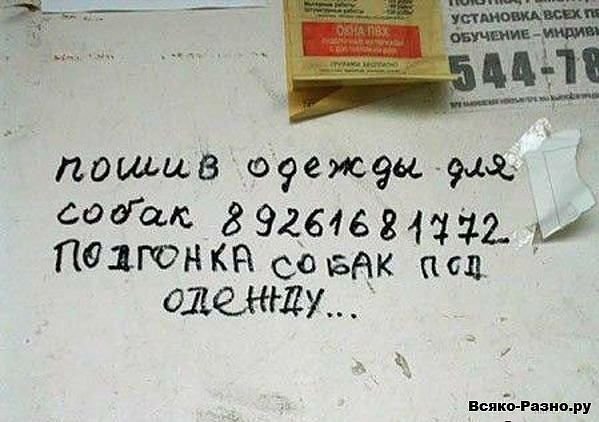 ОКНА ПВХ
УСТАНОВКА ВСЕХ
ОБУЧЕНИЕ – ИНДИВИ
544-78
пошив одежды для
собак 89261681772
ПОДГОНКА СОБАК ПОД
ОДЕЖДУ...
Всяко-Разно.ру